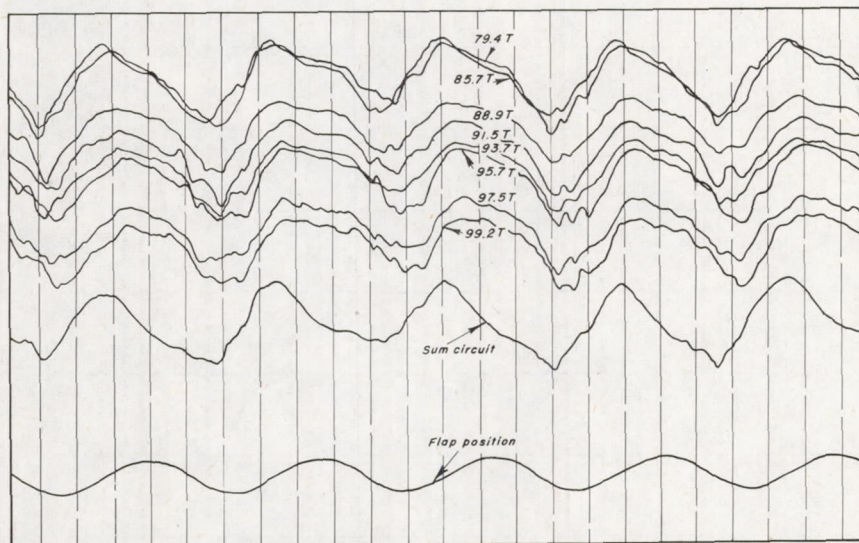 79.4 T
85.7 T
88.9 T
91.5 T
93.7 T
95.7 T
97.5 T
99.2 T
Sum circuit
Flap position